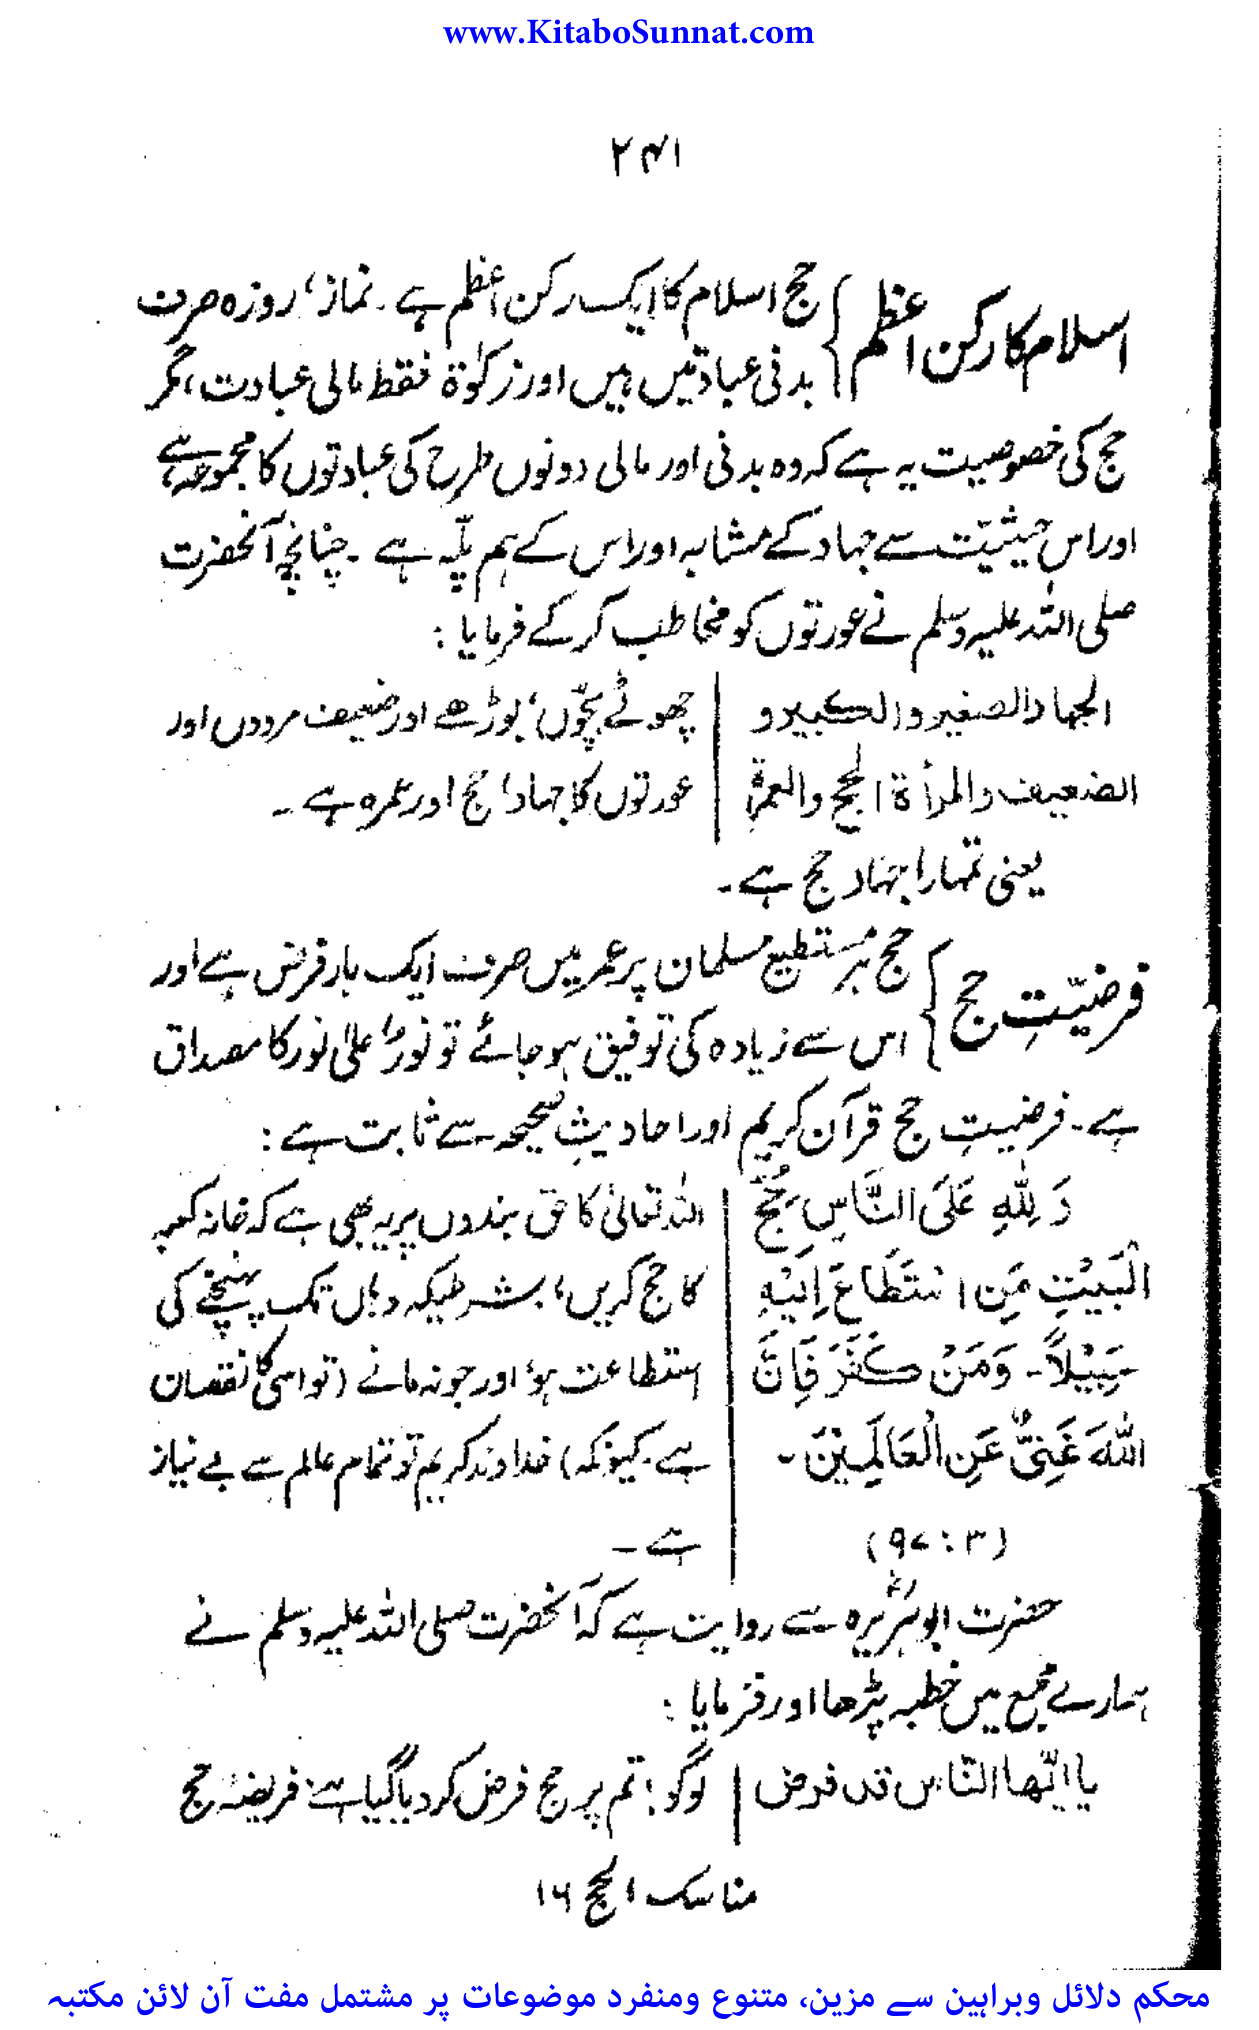 www.KitaboSunnat.com
۲۴۱
اسلام کا رکن اعظم } حج اسلام کا ایک رکن اعظم ہے۔ نماز، روزہ صرف
بدنی عبادتیں ہیں اور زکوٰۃ فقط مالی عبادت، مگر
حج کی خصوصیت یہ ہے کہ وہ بدنی اور مالی دونوں طرح کی عبادتوں کا مجموعہ ہے
اور اس حیثیت سے جہاد کے مشابہ اور اس کے ہم پلّہ ہے۔ چنانچہ آنحضرت
صلی اللہ علیہ وسلم نے عورتوں کو مخاطب کر کے فرمایا:
الجهاد الصغير والكبير و | چھوٹے بچّوں، بوڑھے اور ضعیف مردوں اور
الضعيف والمرأة الحج والعمرة | عورتوں کا جہاد، حج اور عمرہ ہے۔
یعنی تمہارا جہاد حج ہے۔
فرضیّتِ حج } حج ہر مستطیع مسلمان پر عمر میں صرف ایک بار فرض ہے اور
اس سے زیادہ کی توفیق ہو جائے تو نورٌ علیٰ نور کا مصداق
ہے۔ فرضیتِ حج قرآن کریم اور احادیثِ صحیحہ سے ثابت ہے:
وَ لِلّٰهِ عَلَى النَّاسِ حِجُّ | اللہ تعالیٰ کا حق بندوں پر یہ بھی ہے کہ خانہ کعبہ
الْبَيْتِ مَنِ اسْتَطَاعَ اِلَيْهِ | کا حج کریں، بشرطیکہ وہاں تک پہنچنے کی
سَبِيْلاً۔ وَمَنْ كَفَرَ فَاِنَّ | استطاعت ہو، اور جو نہ مانے (تو اسی کا نقصان
اللّٰهَ غَنِيٌّ عَنِ الْعَالَمِيْنَ۔ | ہے کیونکہ) خداوند کریم تو تمام عالم سے بے نیاز
(۳:۹۷) | ہے۔
حضرت ابوہریرہؓ سے روایت ہے کہ آنحضرت صلی اللہ علیہ وسلم نے
ہمارے مجمع میں خطبہ پڑھا اور فرمایا:
يا ايّها النّاس قد فرض | لوگو! تم پر حج فرض کر دیا گیا ہے، فریضۂ حج
مناسک الحج ۱۶
محکم دلائل وبراہین سے مزین، متنوع ومنفرد موضوعات پر مشتمل مفت آن لائن مکتبہ